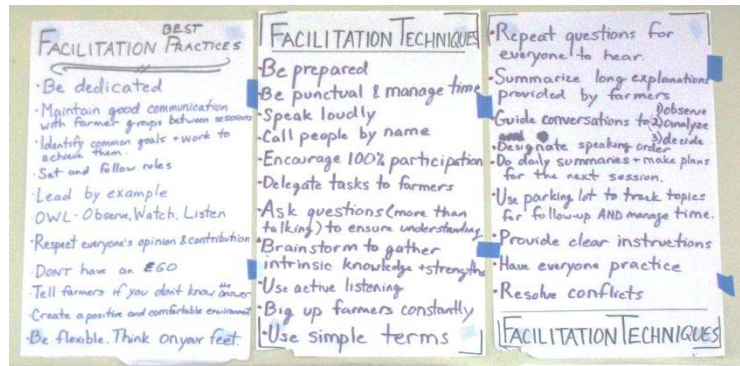 FACILITATION BEST PRACTICES
· Be dedicated
· Maintain good communication
with farmer groups between sessions
· Identify common goals + work to
achieve them.
· Set and follow rules
· Lead by example
· OWL - Observe, Watch, Listen
· Respect everyone's opinion & contribution
· DON'T have an EGO
· Tell farmers if you don't know the answer
· Create a positive and comfortable environment
· Be flexible. Think on your feet.
FACILITATION TECHNIQUES
· Be prepared
· Be punctual & manage time
· Speak loudly
· Call people by name
· Encourage 100% participation
· Delegate tasks to farmers
· Ask questions (more than
talking) to ensure understanding
· Brainstorm to gather
intrinsic knowledge + strengths
· Use active listening
· Big up farmers constantly
· Use simple terms
· Repeat questions for
everyone to hear.
· Summarize long explanations
provided by farmers
· Guide conversations to 1) observe
2) analyze
3) decide
· Designate speaking order
· Do daily summaries + make plans
for the next session.
· Use parking lot to track topics
for follow-up AND manage time.
· Provide clear instructions
· Have everyone practice
· Resolve conflicts
FACILITATION TECHNIQUES